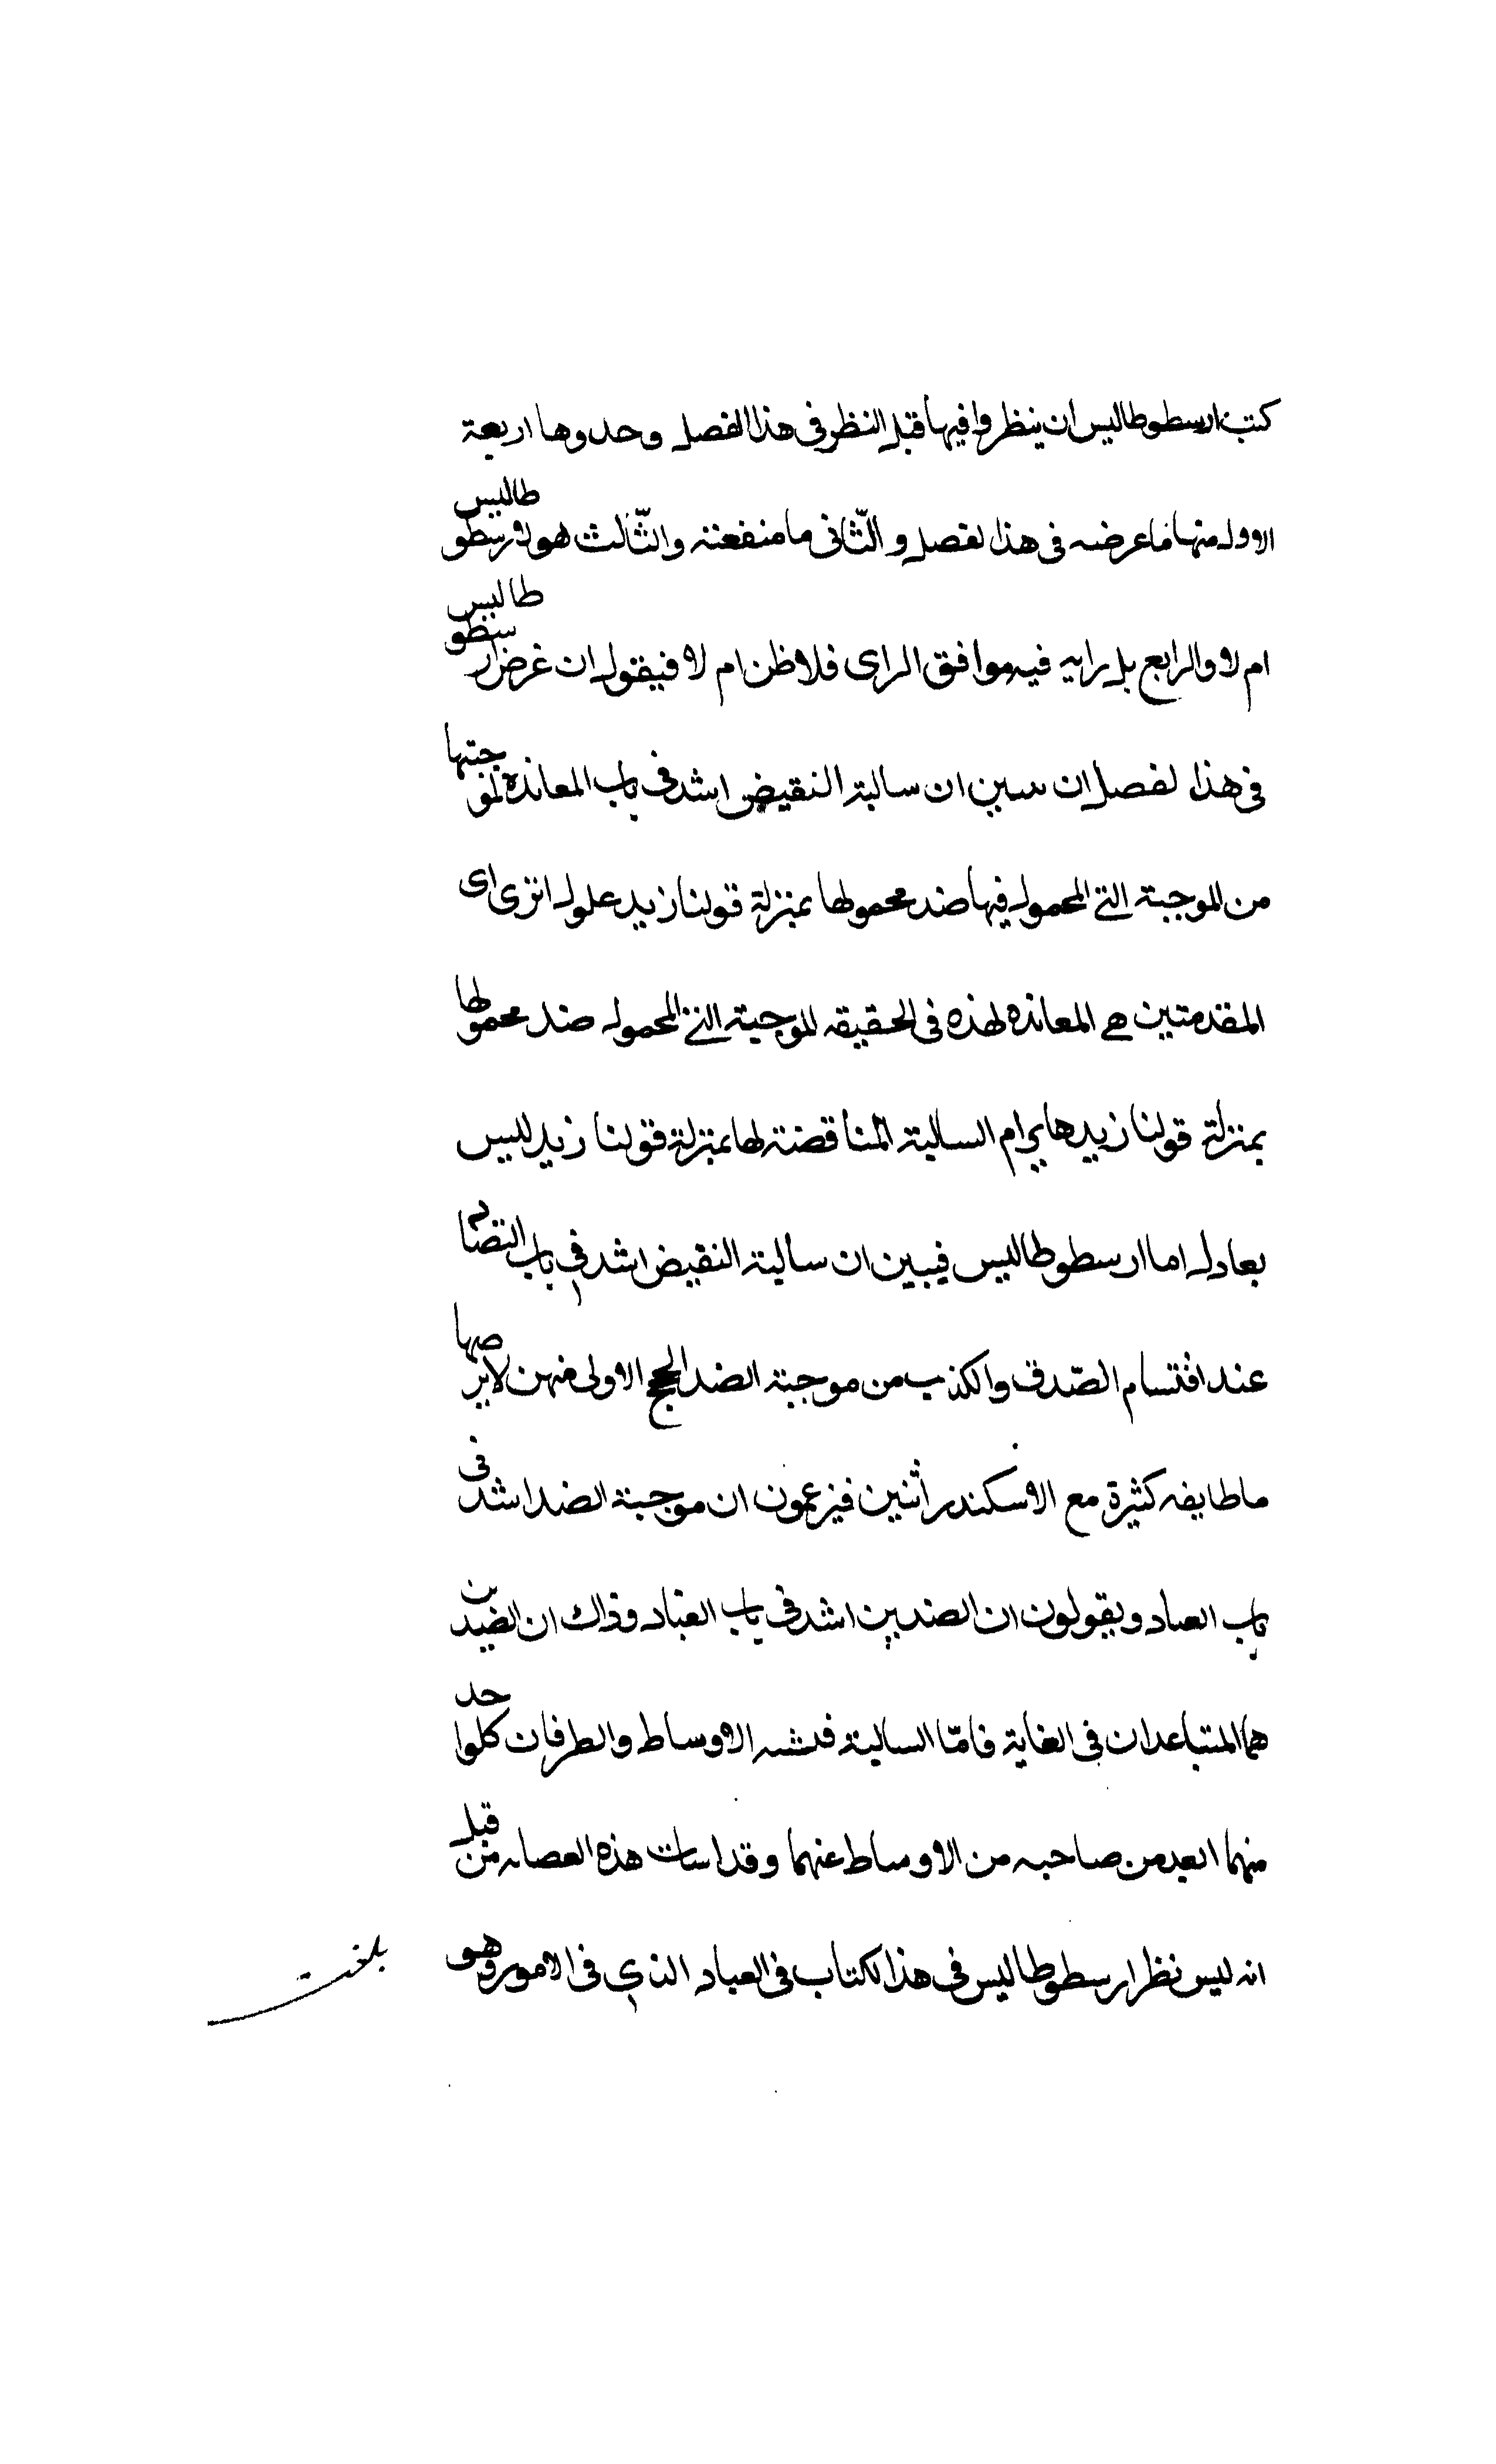 كتب ارسطوطاليس ان ينظروا فيها قبل النظر فى هذا الفصل وحدوها اربعة
الاول منها ما عرضه فى هذا لفصل و الثّانى ما منفعته والثّالث هو لارسطوطاليس
ام لا والرابع بل رايه فيه موافق الراى فلاطن ام لا فيقول ان غرض ارسطوطاليس
فى هذا لفصل ان سىين ان سالبة النقيض اشد فى باب المعانده لموجبتها
من الموجبة التى المحمول فيها ضد محمولها بمنزلة قولنا زيد علول اترى اى
المقدمتين هى المعانده لهذه فى الحقيقه الموجبة التى المحمول ضد محمولها
بمنزلة قولنا زيد هاير ام السالبة المناقضة لها بمنزلة قولنا زيد ليس
بعادل اما ارسطوطاليس فيبين ان سالبة النقيض اشد فى باب التضاد
عند اقتسام الصّدق والكذب من موجبة الضد الحجج الاولى
ما طايفه كثيرة مع الاسكندر فيزعمون ان موجبة الضد اشد فى
باب العىاد ويقولون ان الضدين اشد فى باب العناد وذاك ان الضدين
هما المتباعدان فى الغاية فامّا السالبة فىشبه الاوساط والطرفان كل واحد
منهما ابعد من صاحبه من الاوساط عنهما وقد اسات هذه العصابه من قبل
انه ليس نظر ارسطوطاليس فى هذا لكتاب فى العىاد الذي فى الامور وهو
بلغت